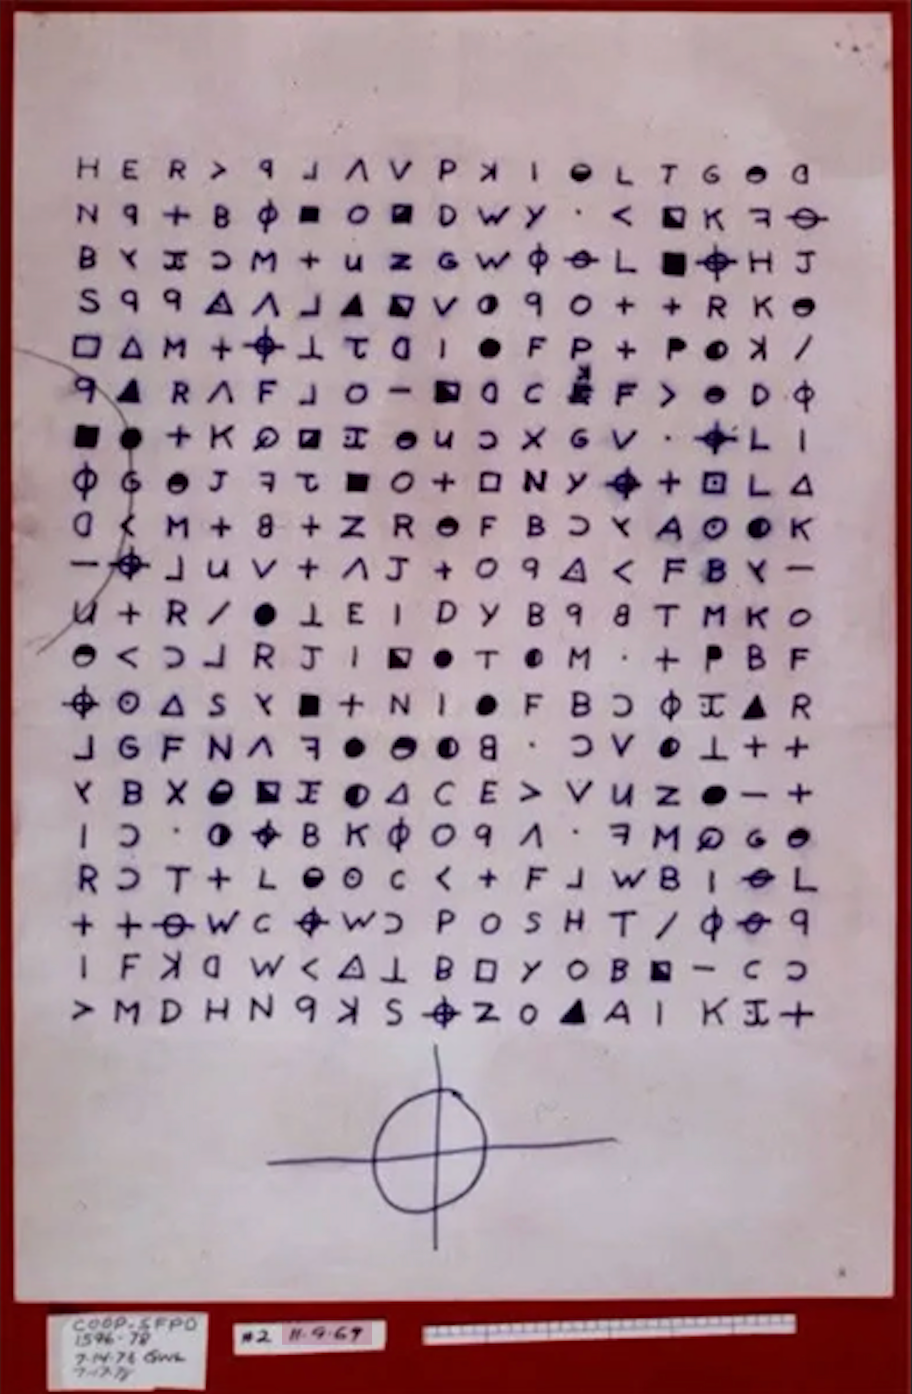 H E R > ꟼ ⅃ Λ V P ꓘ I ◒ L T G ◓ ᗡ
N 9 + B ϕ ■ O ◪ D W Y · < ◪ K ꟻ ⊖
B Y ⵊ Ɔ M + u z G W ϕ ⊖ L ■ ⌖ H J
S 9 9 △ Λ ⅃ ▲ ◪ V ◑ 9 O + + R K ◓
□ △ M + ⌖ ⊥ τ ᗡ I ● F P + P ◐ ꓘ /
9 ▲ R Λ F ⅃ O – ◪ ᗡ C F > ◓ D ϕ
■ ● + K ∅ ◪ ⵊ ◓ u Ɔ X G V · ⌖ L I
ϕ G ◓ J ꟻ τ ■ O + □ N Y ⌖ + ⊡ L △
ᗡ < M + 8 + Z R ◓ F B Ɔ Y A ⊙ ◐ K
– ⌖ ⅃ u V + Λ J + O 9 △ < F B Y –
u + R / ● ⊥ E I D Y B 9 8 T M K O
◓ < Ɔ ⅃ R J I ◪ ● T ◐ M · + P B F
⌖ ⊙ △ S Y ■ + N I ● F B Ɔ ϕ ⵊ ▲ R
⅃ G F N Λ ꟻ ● ◓ ◐ 8 · Ɔ V ◐ ⊥ + +
Y B X ◒ ◪ ⵊ ◐ △ C E > V u z ● – +
I Ɔ · ◑ ⌖ B K ϕ O 9 Λ · ꟻ M ∅ G ◓
R Ɔ T + L ◒ ⊙ C < + F ⅃ W B I ⊖ L
+ + ⊖ W C ⌖ W Ɔ P O S H T / ϕ ⊖ 9
I F ꓘ ᗡ W < △ ⊥ B □ Y O B ◪ – C Ɔ
> M D H N 9 ꓘ S ⌖ Z O ▲ A I K ⵊ +
COOP. SFPD
1596-78
7-14-78 GWL
7-17-78
#2 11·9·69